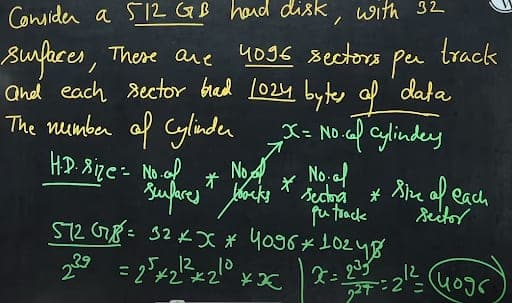 Consider a 512 GB hard disk, with 32
surfaces, There are 4096 sectors per track
and each sector had 1024 bytes of data
The number of Cylinder
X = No. of Cylinders
H.D. Size = No. of Surfaces * No. of tracks * No. of Sectors per track * Size of each Sector
512 GB = 32 * X * 4096 * 1024 B
2^39 = 2^5 * 2^12 * 2^10 * x
X = 2^39 / 2^27 = 2^12 = 4096